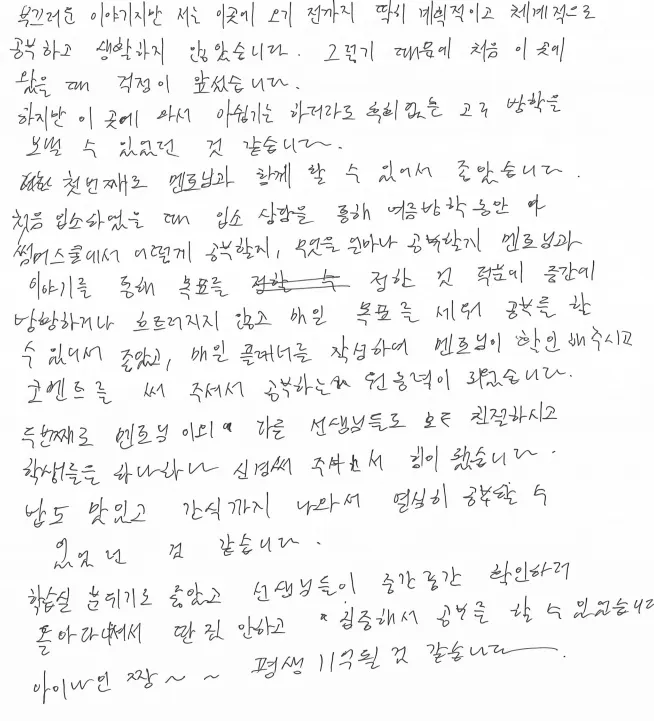 부끄러운 이야기지만 저는 이곳에 오기 전까지 딱히 계획적이고 체계적으로
공부하고 생활하지 않았습니다. 그렇기 때문에 처음 이 곳에
왔을 때 걱정이 앞섰습니다.
하지만 이 곳에 와서 아쉽기는 하더라도 후회없는 고2 방학을
보낼 수 있었던 것 같습니다.
첫번째로 멘토님과 함께 할 수 있어서 좋았습니다.
처음 입소하였을 때 입소 상담을 통해 여름방학동안
썸머스쿨에서 어떻게 공부할지, 무엇을 얼마나 공부할지 멘토님과
이야기를 통해 목표를 정할 수 정한 것 덕분에 중간에
방황하거나 흐트러지지 않고 매일 목표를 세워 공부를 할
수 있어서 좋았고, 매일 플래너를 작성하여 멘토님이 확인해주시고
코멘트를 써 주셔서 공부하는 원동력이 되었습니다.
두번째로 멘토님 이외 다른 선생님들도 모두 친절하시고
학생들을 하나하나 신경써 주셔서 힘이 됐습니다.
밥도 맛있고 간식까지 나와서 열심히 공부할 수
있었던 것 같습니다.
학습실 분위기도 좋았고 선생님들이 중간중간 확인하러
돌아다니셔서 딴 짓 안하고 집중해서 공부를 할 수 있었습니다
아이나인 짱~~ 평생 기억될 것 같습니다.